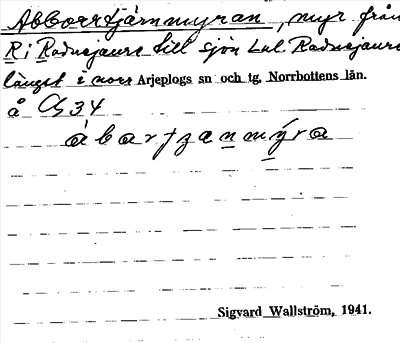 Abborrtjärnmyran, myr från
R i Radnejaure till sjön Lul. Radnejaure
längst i norr Arjeplogs sn och tg, Norrbottens län.
å G 34
Sigvard Wallström, 1941.